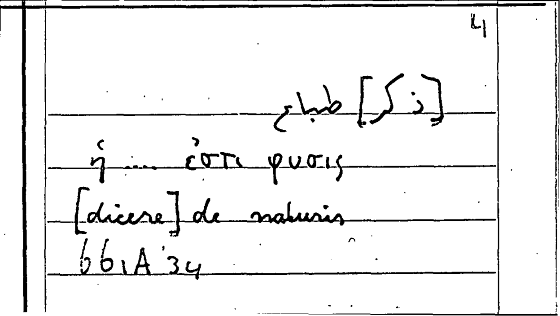 4
[ذكر] طباع
ἡ .... ἐστι φυσις
[dicere] de naturis
661A34